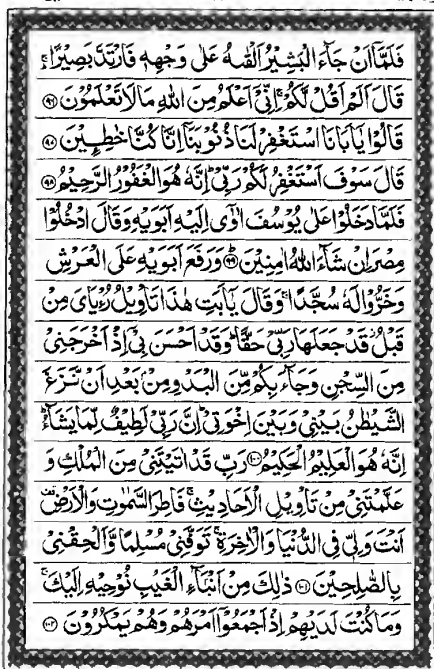 فَلَمَّآ اَنْ جَآءَ الْبَشِيْرُ اَلْقٰىهُ عَلٰى وَجْهِهٖ فَارْتَدَّ بَصِيْرًا ۚ
قَالَ اَلَمْ اَقُلْ لَّكُمْ ۚ اِنِّيْٓ اَعْلَمُ مِنَ اللّٰهِ مَا لَا تَعْلَمُوْنَ ۝۹۶
قَالُوْا يٰٓاَبَانَا اسْتَغْفِرْ لَنَا ذُنُوْبَنَآ اِنَّا كُنَّا خٰطِـِٕيْنَ ۝۹۷
قَالَ سَوْفَ اَسْتَغْفِرُ لَكُمْ رَبِّيْ ؕ اِنَّهٗ هُوَ الْغَفُوْرُ الرَّحِيْمُ ۝۹۸
فَلَمَّا دَخَلُوْا عَلٰى يُوْسُفَ اٰوٰٓى اِلَيْهِ اَبَوَيْهِ وَقَالَ ادْخُلُوْا
مِصْرَ اِنْ شَآءَ اللّٰهُ اٰمِنِيْنَ ؕ۝۹۹ وَرَفَعَ اَبَوَيْهِ عَلَى الْعَرْشِ
وَخَرُّوْا لَهٗ سُجَّدًا ۚ وَقَالَ يٰٓاَبَتِ هٰذَا تَاْوِيْلُ رُءْيَايَ مِنْ
قَبْلُ ؗ قَدْ جَعَلَهَا رَبِّيْ حَقًّا ؕ وَقَدْ اَحْسَنَ بِيْٓ اِذْ اَخْرَجَنِيْ
مِنَ السِّجْنِ وَجَآءَ بِكُمْ مِّنَ الْبَدْوِ مِنْۢ بَعْدِ اَنْ نَّزَغَ
الشَّيْطٰنُ بَيْنِيْ وَبَيْنَ اِخْوَتِيْ ؕ اِنَّ رَبِّيْ لَطِيْفٌ لِّمَا يَشَآءُ ؕ
اِنَّهٗ هُوَ الْعَلِيْمُ الْحَكِيْمُ ۝۱۰۰ رَبِّ قَدْ اٰتَيْتَنِيْ مِنَ الْمُلْكِ وَ
عَلَّمْتَنِيْ مِنْ تَاْوِيْلِ الْاَحَادِيْثِ ۚ فَاطِرَ السَّمٰوٰتِ وَالْاَرْضِ ۫
اَنْتَ وَلِيّٖ فِي الدُّنْيَا وَالْاٰخِرَةِ ۚ تَوَفَّنِيْ مُسْلِمًا وَّاَلْحِقْنِيْ
بِالصّٰلِحِيْنَ ۝۱۰۱ ذٰلِكَ مِنْ اَنْۢبَآءِ الْغَيْبِ نُوْحِيْهِ اِلَيْكَ ۚ
وَمَا كُنْتَ لَدَيْهِمْ اِذْ اَجْمَعُوْٓا اَمْرَهُمْ وَهُمْ يَمْكُرُوْنَ ۝۱۰۲